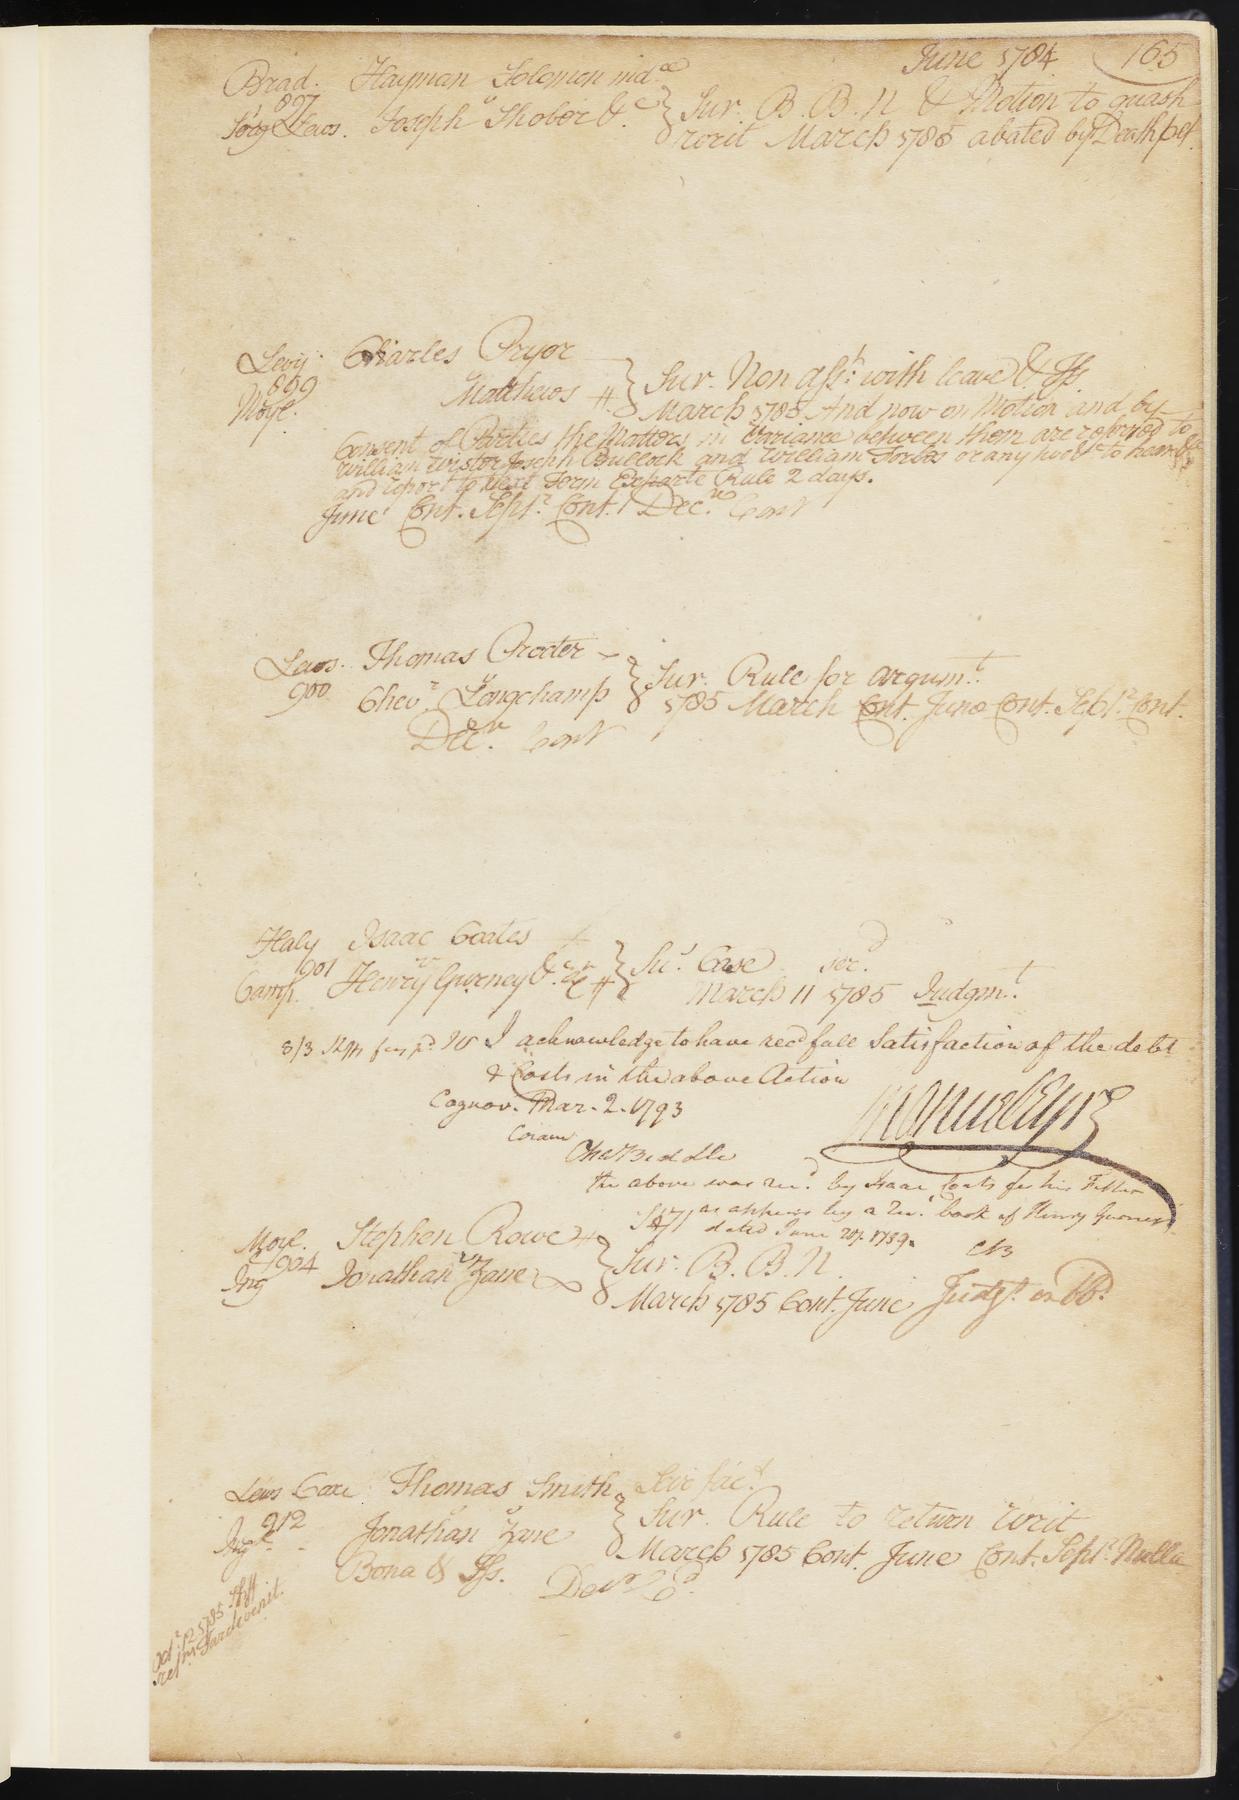 June 1784 165
Brad. Hayman Solomon ind.ee
897 v
Serg & Lews. Joseph Shober &c } Sur. B. B. N & Motion to quash
writ March 1785 abated by Death plt.
Levy. Charles Pryor
869 Matthews # } Sur. Non Asst. with leave & Iss.
Moyl. March 1785 And now on Motion and by
Consent of Parties the Matters in Variance between them are referred to
William Wister Joseph Bullock and William Forbes or any two to hear &c
and report to next Term Exparte Rule 2 days.
June Cont. Septr. Cont. Decr. Cont
Lews. Thomas Procter
900 v } Sur. Rule for argumt.
Chevr. Longchamp 1785 March Cont. June Cont. Septr. Cont.
Decr. Cont
Haly Isaac Coates
901 v } Sur. Case serd.
Camp. Henry Gurney & Ux # March 11 1785 Judgmt.
I acknowledge to have recd full Satisfaction of the debt
& Costs in the above Action
Cognov. Mar. 2. 1793
Coram
Chas Biddle
the above was recd. by Isaac Coats for his Father
as appears by a Rect. book of Henry Gurney
dated June 20, 1789. CB
Moyl. Stephen Rowe #
904 v } Sur. B. B. N.
Ing Jonathan Zane March 1785 Cont. June Judgt. on
Lews Coxe Thomas Smith Scire facs.
912 v } Sur. Rule to return writ
Ing. Jonathan Zane March 1785 Cont. June Cont. Septr. Nulla
Bona & Iss. Decr
Octr. 12 1785
retns Tarde venit.